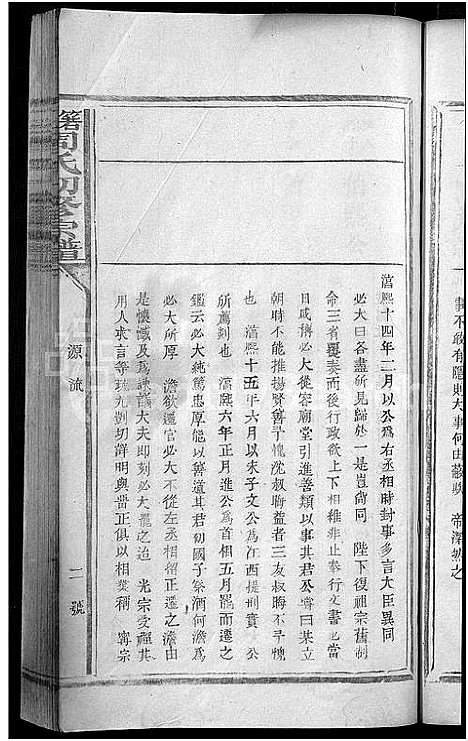 事不敢有隱則大事何由蔽 帝深然之
淳熙十四年二月以公爲右丞相時封事多言大臣異同
必大曰各盡所見歸於一是豈尚同 陛下復祖宗舊制
命三省覆奏而後行政欲上下相維非止奉行文書也當
日咸傳必大從容廟堂引進善類以事其君公嘗曰某立
朝時不能推揚賢善尤愧沈叔晦益者三友叔晦不予愧
也 淳熙十五年六月以朱子文公爲江西提刑實 公
所爲劾也 淳熙六年正月進公爲首相五月罷而遷之
鑑云必大純篤忠厚能以善道其君初國子祭酒何澹爲
必大所厚 澹欲遷官必大不從左丞相留正遷之澹由
是懷憾及爲諫議大夫卽刻必大罷之迨 光宗受禪其
用人求言等疏九剴切詳明與晋正俱以相業稱 寗宗
周氏初修宗譜
源流
二號